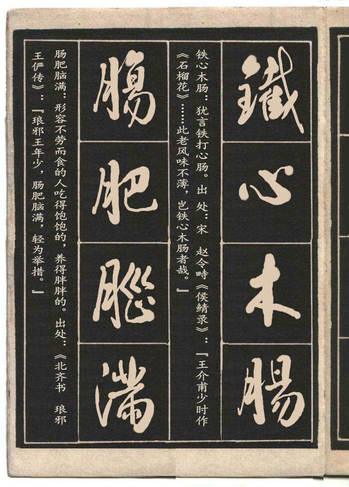 鐵心木腸
铁心木肠：犹言铁打心肠。出处：宋 赵令畤《侯鲭录》：『王介甫少时作
《石榴花》……此老风味不薄，岂铁心木肠者哉。』
腸肥腦滿
肠肥脑满：形容不劳而食的人吃得饱饱的，养得胖胖的。出处：《北齐书 琅邪
王俨传》：『琅邪王年少，肠肥脑满，轻为举措。』